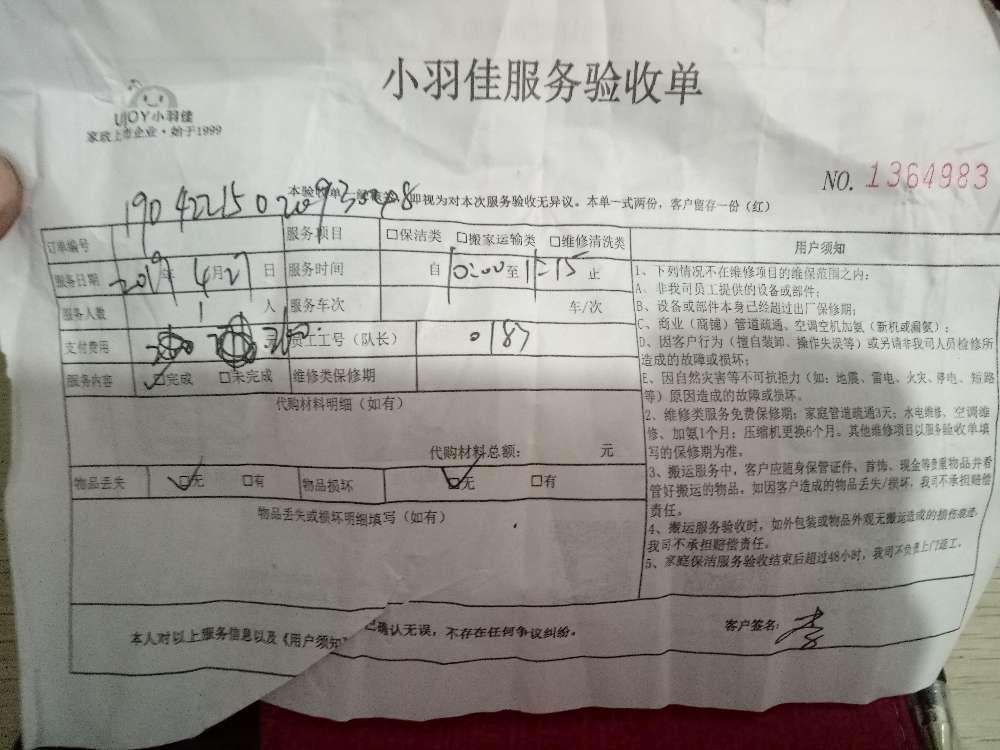 小羽佳服务验收单
UJOY小羽佳
家政上市企业·始于1999
NO. 1364983
本验收单一经签字，即视为对本次服务验收无异议。本单一式两份，客户留存一份（红）
订单编号 服务项目 □保洁类 □搬家运输类 □维修清洗类
服务日期 2019年4月27日 服务时间 自 至 止
服务人数 1 人 服务车次 车/次
支付费用 员工工号（队长） 0187
服务内容 □完成 □未完成 维修类保修期
代购材料明细（如有）
代购材料总额： 元
物品丢失 □无 □有 物品损坏 □无 □有
物品丢失或损坏明细填写（如有）
用户须知
1、下列情况不在维修项目的维保范围之内：
A、非我司员工提供的设备或部件；
B、设备或部件本身已经超过出厂保修期；
C、商业（商铺）管道疏通、空调空机加氨（新机或漏氨）；
D、因客户行为（擅自装卸、操作失误等）或另请非我司人员检修所
造成的故障或损坏；
E、因自然灾害等不可抗拒力（如：地震、雷电、火灾、停电、短路
等）原因造成的故障或损坏。
2、维修类服务免费保修期：家庭管道疏通3天；水电维修、空调维
修、加氨1个月；压缩机更换6个月。其他维修项目以服务验收单填
写的保修期为准。
3、搬运服务中，客户应随身保管证件、首饰、现金等贵重物品并看
管好搬运的物品。如因客户造成的物品丢失/损坏，我司不承担赔偿
责任。
4、搬运服务验收时，如外包装或物品外观无搬运造成的损伤痕迹，
我司不承担赔偿责任。
5、家庭保洁服务验收结束后超过48小时，我司不负责上门返工。
本人对以上服务信息以及《用户须知》已确认无误，不存在任何争议纠纷。 客户签名：